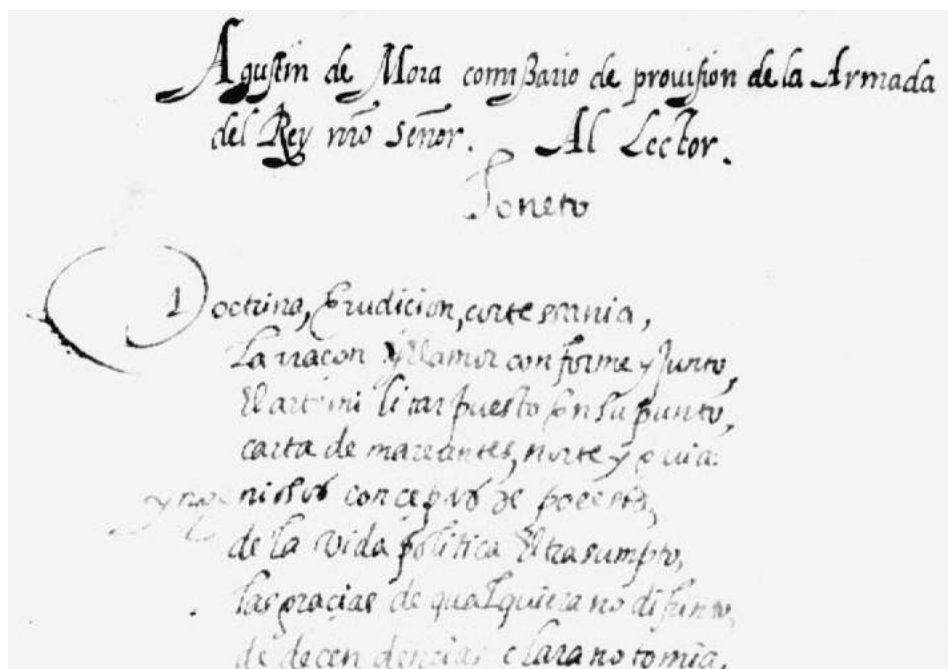 Agustin de Mora comissario de prouision de la Armada
del Rey nro Señor. Al Lector.
Soneto
Doctrina, Erudicion, cortessania,
La racon y el amor conforme y Junto,
El arte militar puesto en su punto,
carta de mareantes, norte y guia.
yngeniosos conceptos de poessia,
de la vida politica El trasumpto,
las gracias de qualquiera no difunto,
de decendencias clara notomia,